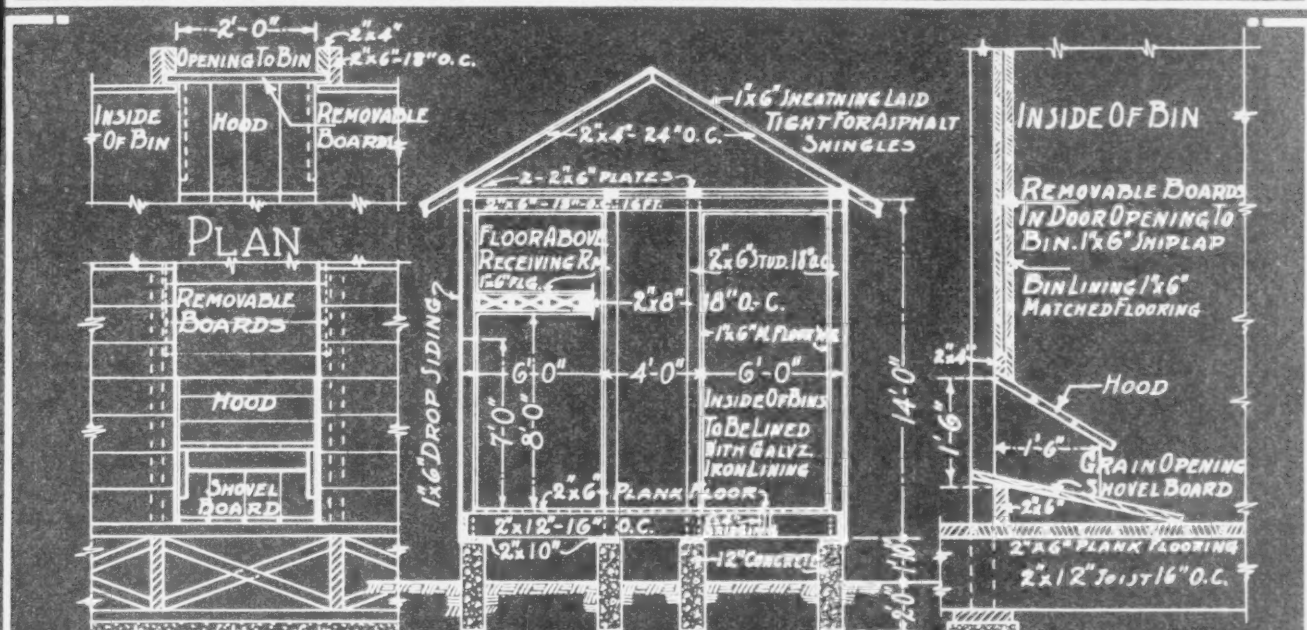 2'-0"
2"x4"
OPENING TO BIN
2"x6"-18" O.C.
INSIDE
OF BIN
HOOD
REMOVABLE
BOARDS
PLAN
REMOVABLE
BOARDS
HOOD
SHOVEL
BOARD
1"x6" SHEATHING LAID
TIGHT FOR ASPHALT
SHINGLES
2"x4"-24" O.C.
2-2"x6" PLATES
FLOOR ABOVE
RECEIVING RM.
1"x6" FLG.
2"x6" STUD. 18" O.C.
2"x8" 18" O.-C.
1"x6" DROP SIDING
6'-0"
4'-0"
6'-0"
7'-0"
8'-0"
INSIDE OF BINS
TO BE LINED
WITH GALVZ.
IRON LINING
2"x6" PLANK FLOOR
2"x12"-16" O.C.
2"x10"
12" CONCRETE
14'-0"
1'-10"
2'-0"
INSIDE OF BIN
REMOVABLE BOARDS
IN DOOR OPENING TO
BIN. 1"x6" SHIPLAP
BIN LINING 1"x6"
MATCHED FLOORING
2"x4"
HOOD
1'-6"
1'-6"
GRAIN OPENING
SHOVEL BOARD
2"x6"
2"x6" PLANK FLOORING
2"x12" JOIST 16" O.C.